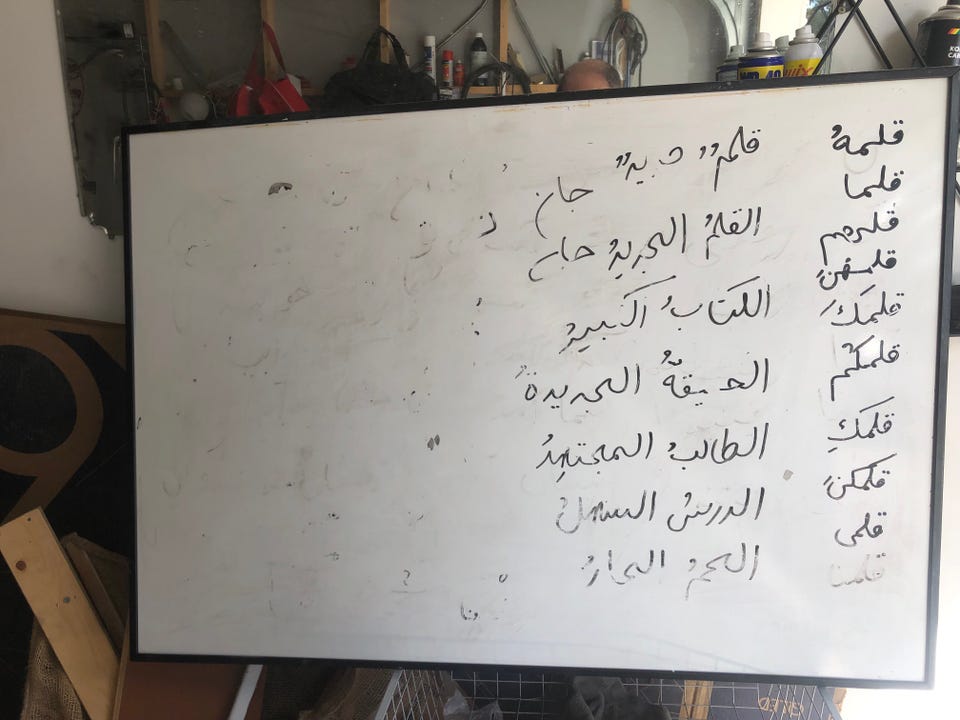 قلمهُ
قلمها
قلمهم
قلمهنَ
قلمَكَ
قلمكُم
قلمكِ
قلمكنَ
قلمی
قلمنا
قلمٌ جان
القلمُ الجدیدُ جان
الكتابُ الكبیرُ
الجدیدةُ
الطالبُ المجتهِدُ
الدرسُ السهلُ
الحارُ
WD-40
WIX